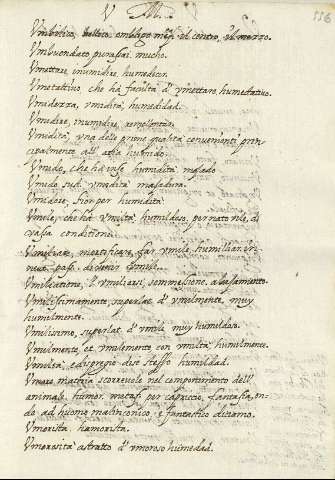 V M.
556
Vmbilico, bellico, ombligo il centro, il mezzo.
Vmbuondato purassai. mucho.
Vmettare, inumidire, humedecer.
Vmettativo che hà facultà d' vmettare humedativo.
Vmidezza, vmidità, humedidad.
Vmidire, inumidire,
Vmidità vna delle prime qualità convenienti prin
cipalmente all' aria humido.
Vmido, che hà in se humidità mojado
Vmido sust. vmidità mojadura.
humidità
Vmile, che hà vmiltà, humildoso, per nato vile, di
bassa conditione.
mortificare, far vmile, humilliar. in
neut. pass. divenir humile.
Vmiliatione, l' vmiliarsi, sommessione, abajamento.
Vmilissimamente, superlat. d' vmilmente, muy
humilmente.
Vmilissimo, superlat. d' vmile muy humildoso.
Vmilmente, et vmilemente con vmiltà humilmente.
Vmiltà, dispregio di se stesso humildad.
Vmore materia scorrevole nel componimento dell'
animale, humor, metaf. per capriccio, fantasia, on
de ad huomo malinconico, e fantastico diciamo.
Vmorista humorista.
Vmorosità astratto d' vmoroso humedad.